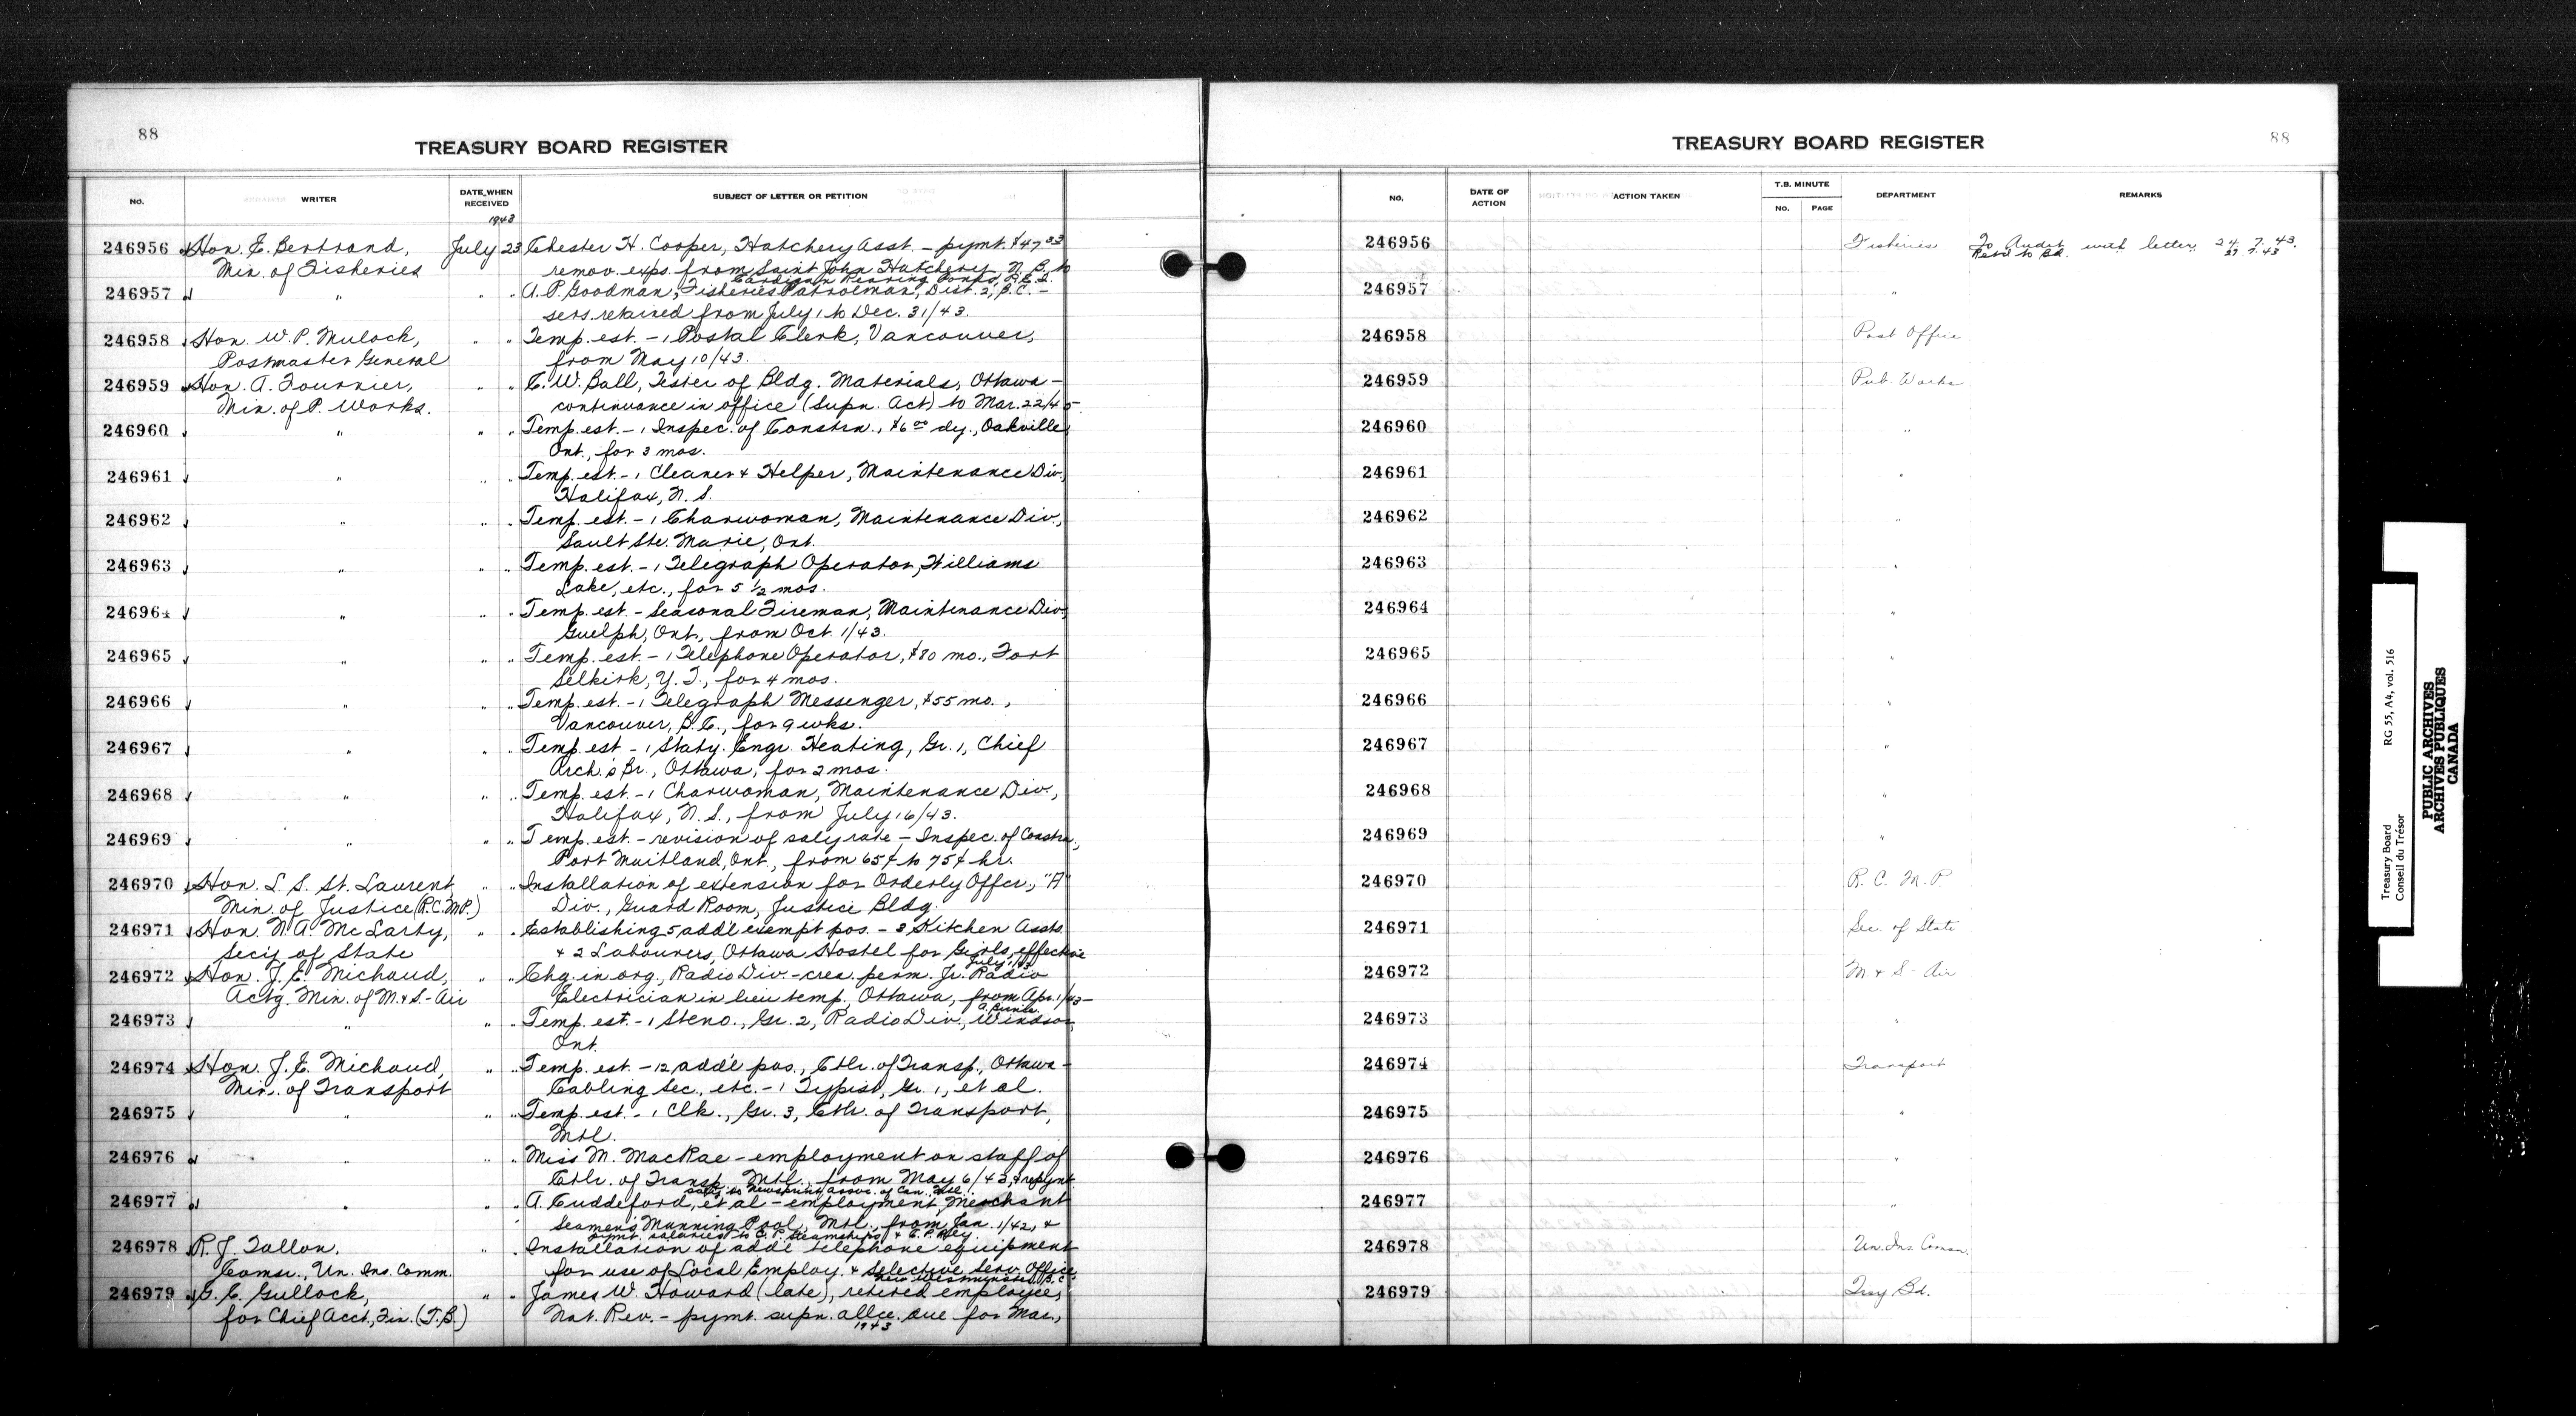 88
TREASURY BOARD REGISTER
NO. WRITER DATE WHEN RECEIVED SUBJECT OF LETTER OR PETITION
1943
246956 Hon. E. Bertrand, July 23 Chester H. Cooper, Hatchery Asst. - pymt. $47.33
Min. of Fisheries remov. exps. from Saint John Hatchery, N. B. to
Cardigan Rearing Ponds, P.E.I.
246957 " " " A. P. Goodman, Fisheries Patrolman, Dist. 2, B.C. -
sers. retained from July 1 to Dec. 31/43.
246958 Hon. W. P. Mulock, " " Temp. est. - 1 Postal Clerk, Vancouver,
Postmaster General from May 10/43.
246959 Hon. A. Fournier, " " C. W. Ball, Tester of Bldg. Materials, Ottawa -
Min. of P. Works. continuance in office (Supn. Act) to Mar. 22/45.
246960 " " " Temp. est. - 1 Inspec. of Constrn., $6.00 dy., Oakville,
Ont., for 3 mos.
246961 " " " Temp. est. - 1 Cleaner & Helper, Maintenance Div.,
Halifax, N. S.
246962 " " " Temp. est. - 1 Charwoman, Maintenance Div.,
Sault Ste. Marie, Ont.
246963 " " " Temp. est. - 1 Telegraph Operator, Williams
Lake, etc., for 5 1/2 mos.
246964 " " " Temp. est. - Seasonal Fireman, Maintenance Div.,
Guelph, Ont., from Oct. 1/43.
246965 " " " Temp. est. - 1 Telephone Operator, $80 mo., Fort
Selkirk, Y. T., for 4 mos.
246966 " " " Temp. est. - 1 Telegraph Messenger, $55 mo.,
Vancouver, B. C., for 9 wks.
246967 " " " Temp. est - 1 Staty. Engr. Heating, Gr. 1, Chief
Arch.'s Br., Ottawa, for 2 mos.
246968 " " " Temp. est. - 1 Charwoman, Maintenance Div.,
Halifax, N. S., from July 16/43.
246969 " " " Temp. est. - revision of saly rate - Inspec. of Constrn.,
Port Maitland, Ont., from 65¢ to 75¢ hr.
246970 Hon. L. S. St. Laurent " " Installation of extension for Orderly Offcr., "A"
Min. of Justice (R.C.M.P.) Div., Guard Room, Justice Bldg.
246971 Hon. N. A. McLarty, " " Establishing 5 add'l exempt pos. - 3 Kitchen Assts.
Sec'y of State & 2 Labourers, Ottawa Hostel for Girls, effective
July
246972 Hon. J. E. Michaud, " " Chg. in org., Radio Div. - crea. perm. Jr. Radio
Actg. Min. of M. & S. - Air Electrician in lieu temp., Ottawa, from Apr. 1/43 -
246973 " " " Temp. est. - 1 Steno., Gr. 2, Radio Div., Windsor,
Ont.
246974 Hon. J. E. Michaud, " " Temp. est. - 12 add'l pos., Ctlr. of Transp., Ottawa -
Min. of Transport Cabling Sec., etc. - 1 Typist, Gr. 1, et al.
246975 " " " Temp. est. - 1 Clk., Gr. 3, Ctlr. of Transport,
Mtl.
246976 " " " Miss M. MacRae - employment on staff of
Ctlr. of Transp. Mtl., from May 6/43, &
saly to Newsprint Assoc. of Can. Mtl.
246977 " " " A. Cuddeford, et al - employment, Merchant
Seamen's Manning Pool, Mtl., from Jan. 1/42, &
pymt. salaries to C. P. Steamships & C. P. Rly.
246978 R. J. Tallon, " " Installation of add'l telephone equipment
Comsr., Un. Ins. Comm. for use of Local Employ. & Selective Serv. Office,
New Westminster, B. C.
246979 G. C. Gullock, " " James W. Howard (late), retired employee,
for Chief Acct., Fin. (T.B.) Nat. Rev. - pymt. supn. allce. due for Mar.,
1943
TREASURY BOARD REGISTER
88
NO. DATE OF ACTION ACTION TAKEN T.B. MINUTE NO. PAGE DEPARTMENT REMARKS
246956 Fisheries To Audit with letter 24.7.43.
Retd to Bd. 27.7.43
246957 "
246958 Post Office
246959 Pub. Works
246960 "
246961 "
246962 "
246963 "
246964 "
246965 "
246966 "
246967 "
246968 "
246969 "
246970 R. C. M. P.
246971 Sec. of State
246972 M. & S - Air
246973 "
246974 Transport
246975 "
246976 "
246977 "
246978 Un. Ins. Comm.
246979 Trsy Bd.
Treasury Board RG 55, A4, vol. 516
Conseil du Trésor
PUBLIC ARCHIVES
ARCHIVES PUBLIQUES
CANADA